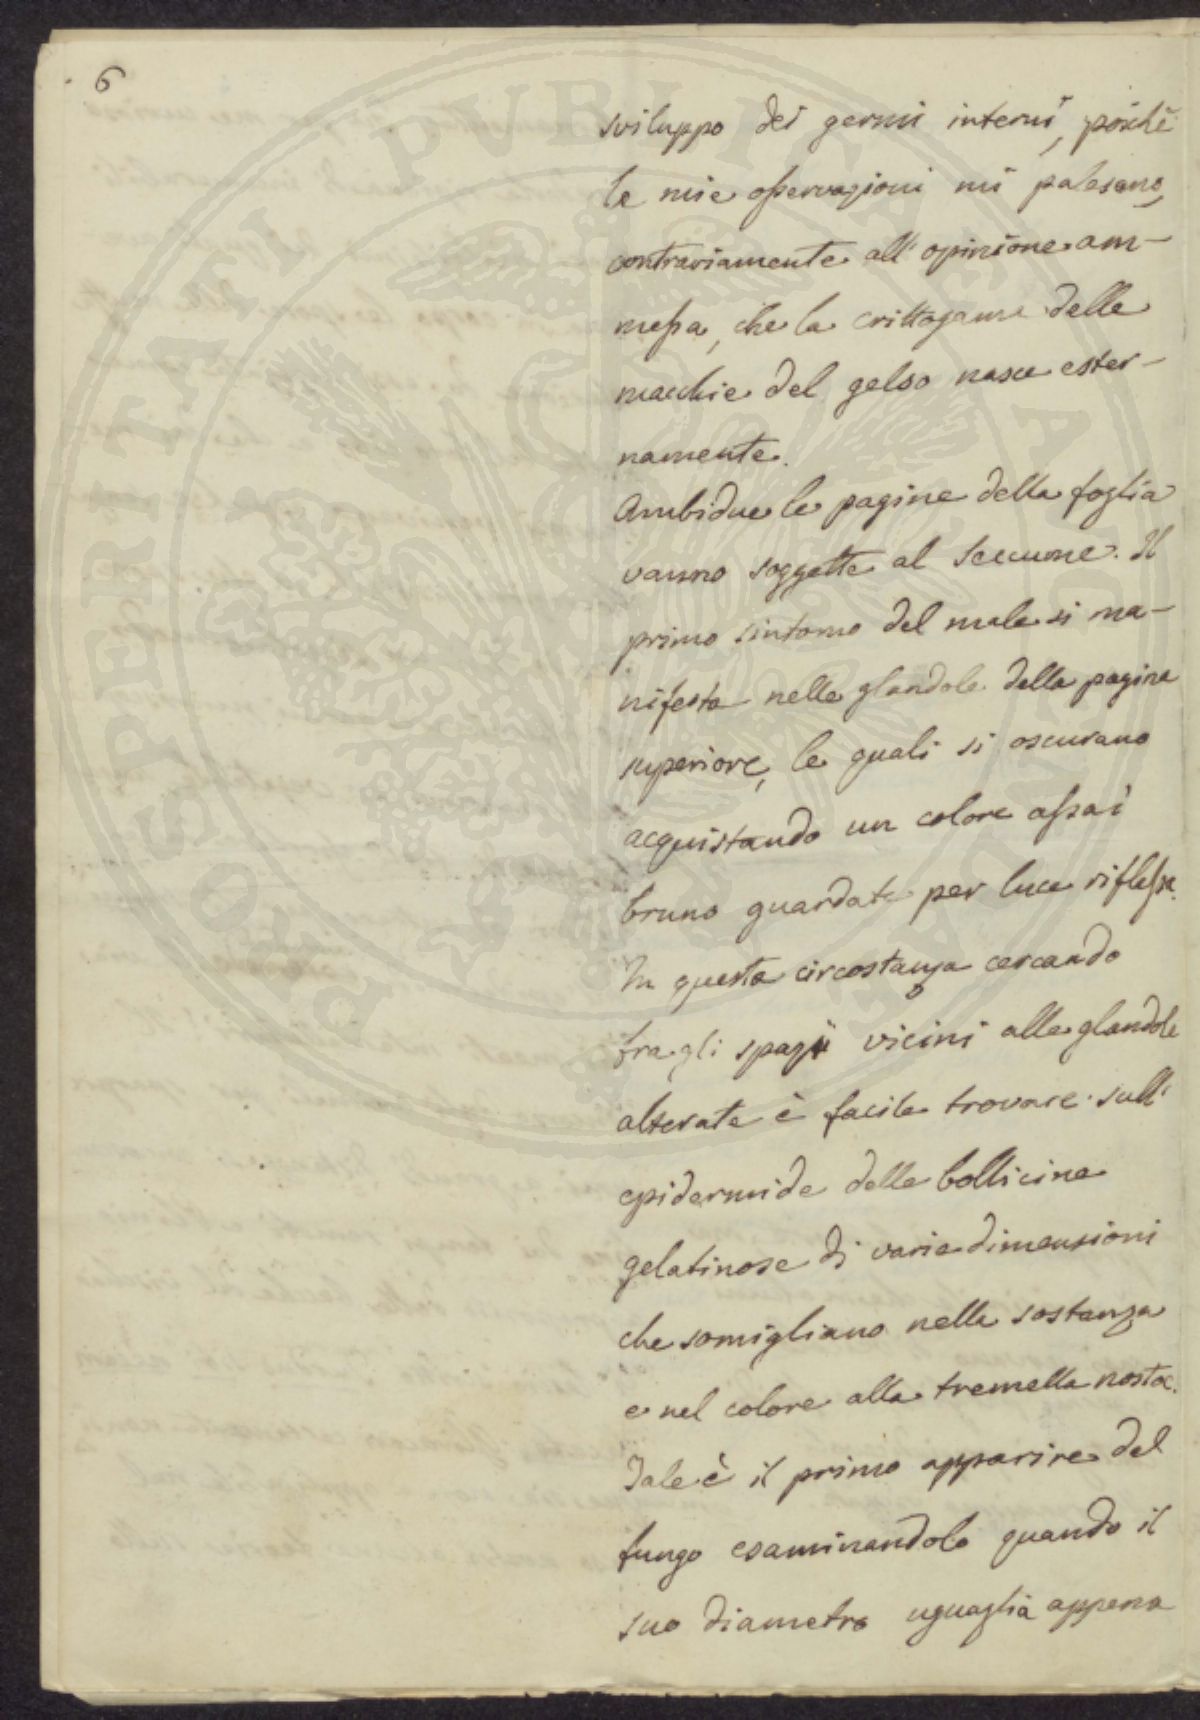 6
sviluppo dei germi interni, poichè
le mie osservazioni mi palesano,
contrariamente all' opinione am-
messa, che la crittogama delle
macchie del gelso nasce ester-
namente.
Ambidue le pagine della foglia
vanno soggette al Seccume. Il
primo sintomo del male si ma-
nifesta nelle glandole della pagina
superiore, le quali si oscurano
acquistando un colore assai
bruno guardate per luce riflessa.
In questa circostanza cercando
fra gli spazii vicini alle glandole
alterate è facile trovare sull'
epidermide delle bollicine
gelatinose di varie dimensioni
che somigliano nella sostanza
e nel colore alla tremella nostoc.
Tale è il primo apparire del
fungo esaminandolo quando il
suo diametro uguaglia appena
PROSPERITATI PUBLICAE AUGENDAE